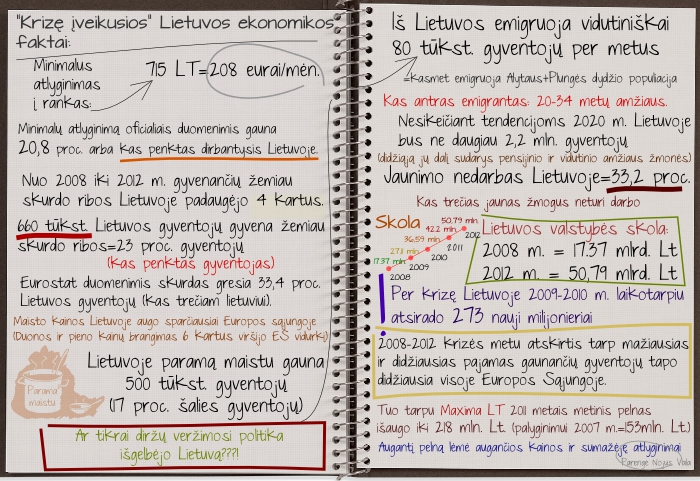 "Krizę įveikusios" Lietuvos ekonomikos
faktai:
Minimalus
atlyginimas
į rankas:
715 LT=208 eurai/mėn.
Minimalų atlyginimą oficialiais duomenimis gauna
20,8 proc. arba kas penktas dirbantysis Lietuvoje.
Nuo 2008 iki 2012 m. gyvenančių žemiau
skurdo ribos Lietuvoje padaugėjo 4 kartus.
660 tūkst. Lietuvos gyventojų gyvena žemiau
skurdo ribos=23 proc. gyventojų
(kas penktas gyventojas)
Eurostat duomenimis skurdas gresia 33,4 proc.
Lietuvos gyventojų (kas trečiam lietuviui).
Maisto kainos Lietuvoje augo sparčiausiai Europos sąjungoje
(Duonos ir pieno kainų brangimas 6 kartus viršijo ES vidurkį)
Parama
maistu
Lietuvoje paramą maistu gauna
500 tūkst. gyventojų
(17 proc. šalies gyventojų)
Ar tikrai diržų veržimosi politika
išgelbėjo Lietuvą???!
Iš Lietuvos emigruoja vidutiniškai
80 tūkst. gyventojų per metus
=Kasmet emigruoja Alytaus+Plungės dydžio populiacija
Kas antras emigrantas: 20-34 metų amžiaus.
Nesikeičiant tendencijoms 2020 m. Lietuvoje
bus ne daugiau 2,2 mln. gyventojų
(didžiąją jų dalį sudarys pensijinio ir vidutinio amžiaus žmonės)
Jaunimo nedarbas Lietuvoje=33,2 proc.
Kas trečias jaunas žmogus neturi darbo
Skola
17.37 mln.
27.11 mln.
36,59 mln.
42.2 mln.
50,79 mln.
2008
2009
2010
2011
2012
Lietuvos valstybės skola:
2008 m. = 17.37 mlrd. Lt
2012 m. = 50,79 mlrd. Lt
Per krizę Lietuvoje 2009-2010 m. laikotarpiu
atsirado 273 nauji milijonieriai
2008-2012 Krizės metu atskirtis tarp mažiausias
ir didžiausias pajamas gaunančių gyventojų tapo
didžiausia visoje Europos Sąjungoje.
Tuo tarpu Maxima LT 2011 metais metinis pelnas
išaugo iki 218 mln. Lt (palyginimui 2007 m.=153mln. Lt)
Augantį pelną lėmė augančios kainos ir sumažėję atlyginimai
Parengė Nojus Vala